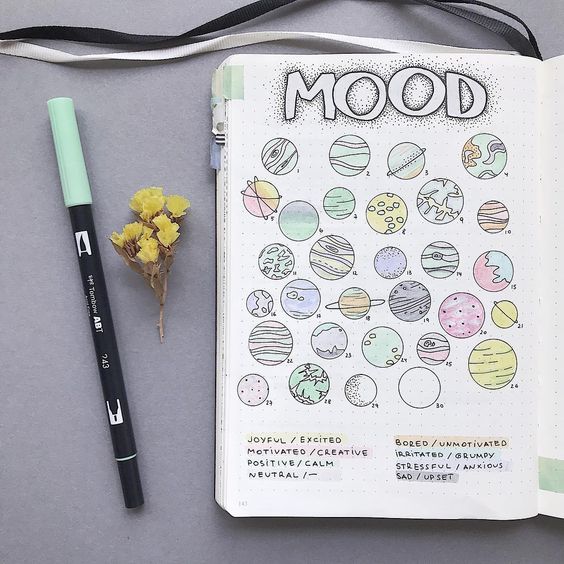 MOOD
1 2 3 4
5 6 7 8 9 10
11 12 13 14 15
16 17 18 19 20 21
22 23 24 25 26
27 28 29 30
JOYFUL / EXCITED
MOTIVATED / CREATIVE
POSITIVE / CALM
NEUTRAL / —
BORED / UNMOTIVATED
IRRITATED / GRUMPY
STRESSFUL / ANXIOUS
SAD / UPSET
Tombow ABT
243